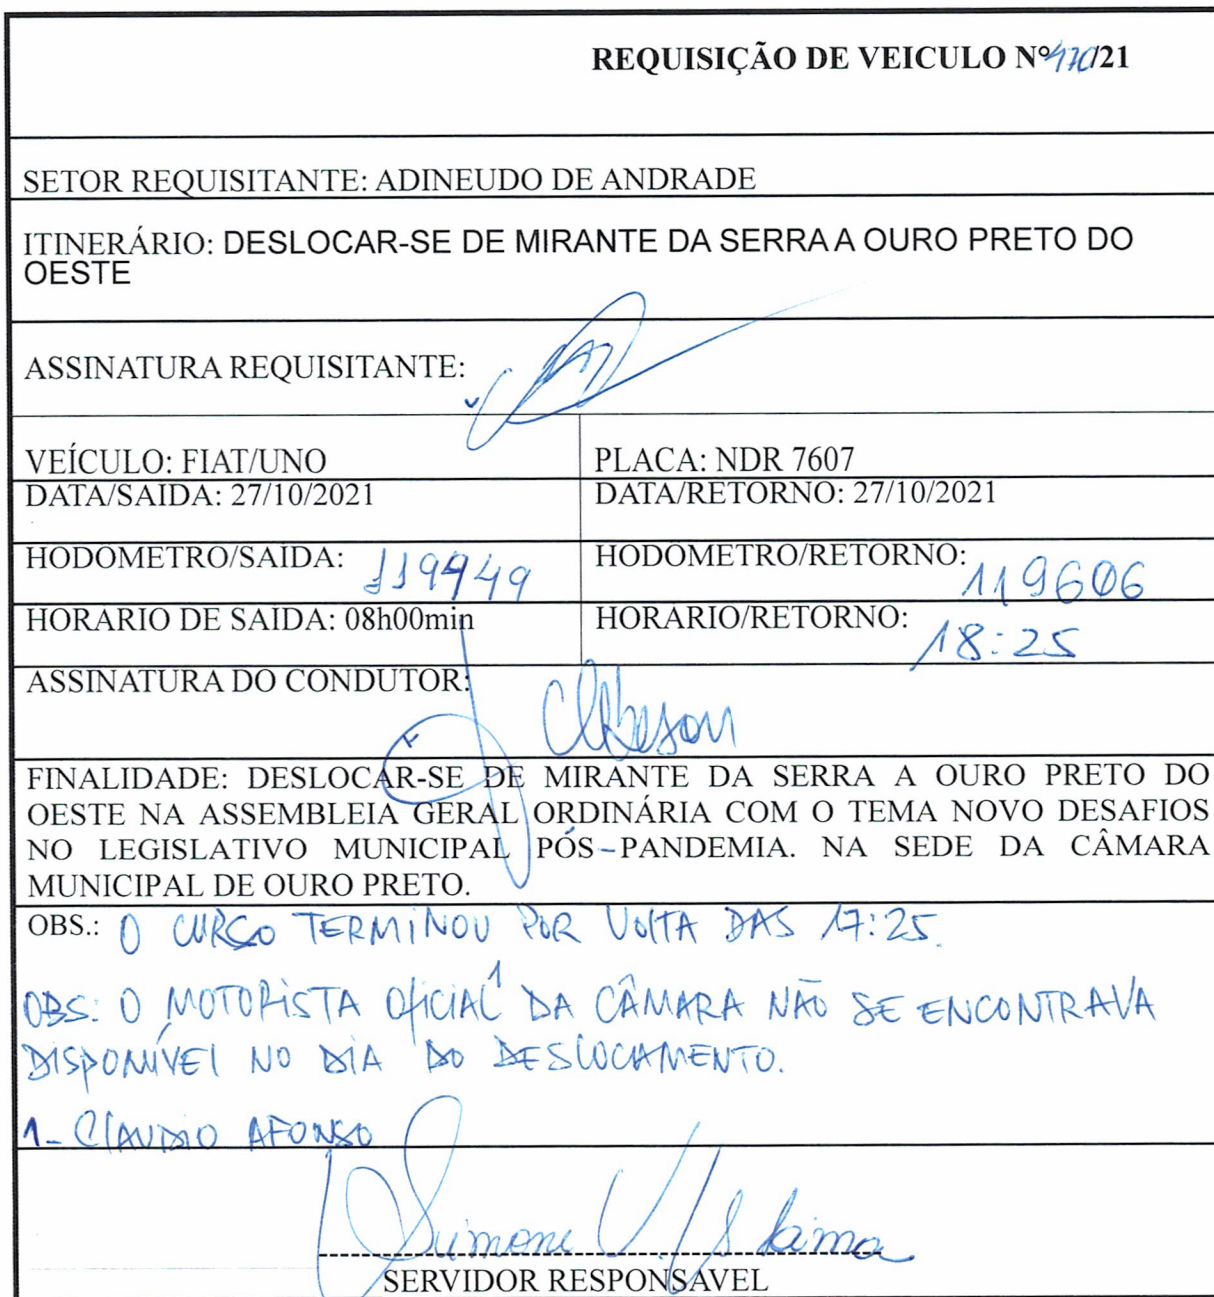 REQUISIÇÃO DE VEICULO Nº470/21
SETOR REQUISITANTE: ADINEUDO DE ANDRADE
ITINERÁRIO: DESLOCAR-SE DE MIRANTE DA SERRA A OURO PRETO DO
OESTE
ASSINATURA REQUISITANTE:
VEÍCULO: FIAT/UNO PLACA: NDR 7607
DATA/SAIDA: 27/10/2021 DATA/RETORNO: 27/10/2021
HODOMETRO/SAIDA: 119449 HODOMETRO/RETORNO: 119606
HORARIO DE SAIDA: 08h00min HORARIO/RETORNO: 18:25
ASSINATURA DO CONDUTOR:
FINALIDADE: DESLOCAR-SE DE MIRANTE DA SERRA A OURO PRETO DO
OESTE NA ASSEMBLEIA GERAL ORDINÁRIA COM O TEMA NOVO DESAFIOS
NO LEGISLATIVO MUNICIPAL PÓS-PANDEMIA. NA SEDE DA CÂMARA
MUNICIPAL DE OURO PRETO.
OBS.: O CURSO TERMINOU POR VOLTA DAS 17:25.
OBS: O MOTORISTA OFICIAL¹ DA CÂMARA NÃO SE ENCONTRAVA
DISPONÍVEL NO DIA DO DESLOCAMENTO.
1- CLAUDIO AFONSO
Simone V. S Lima
SERVIDOR RESPONSAVEL